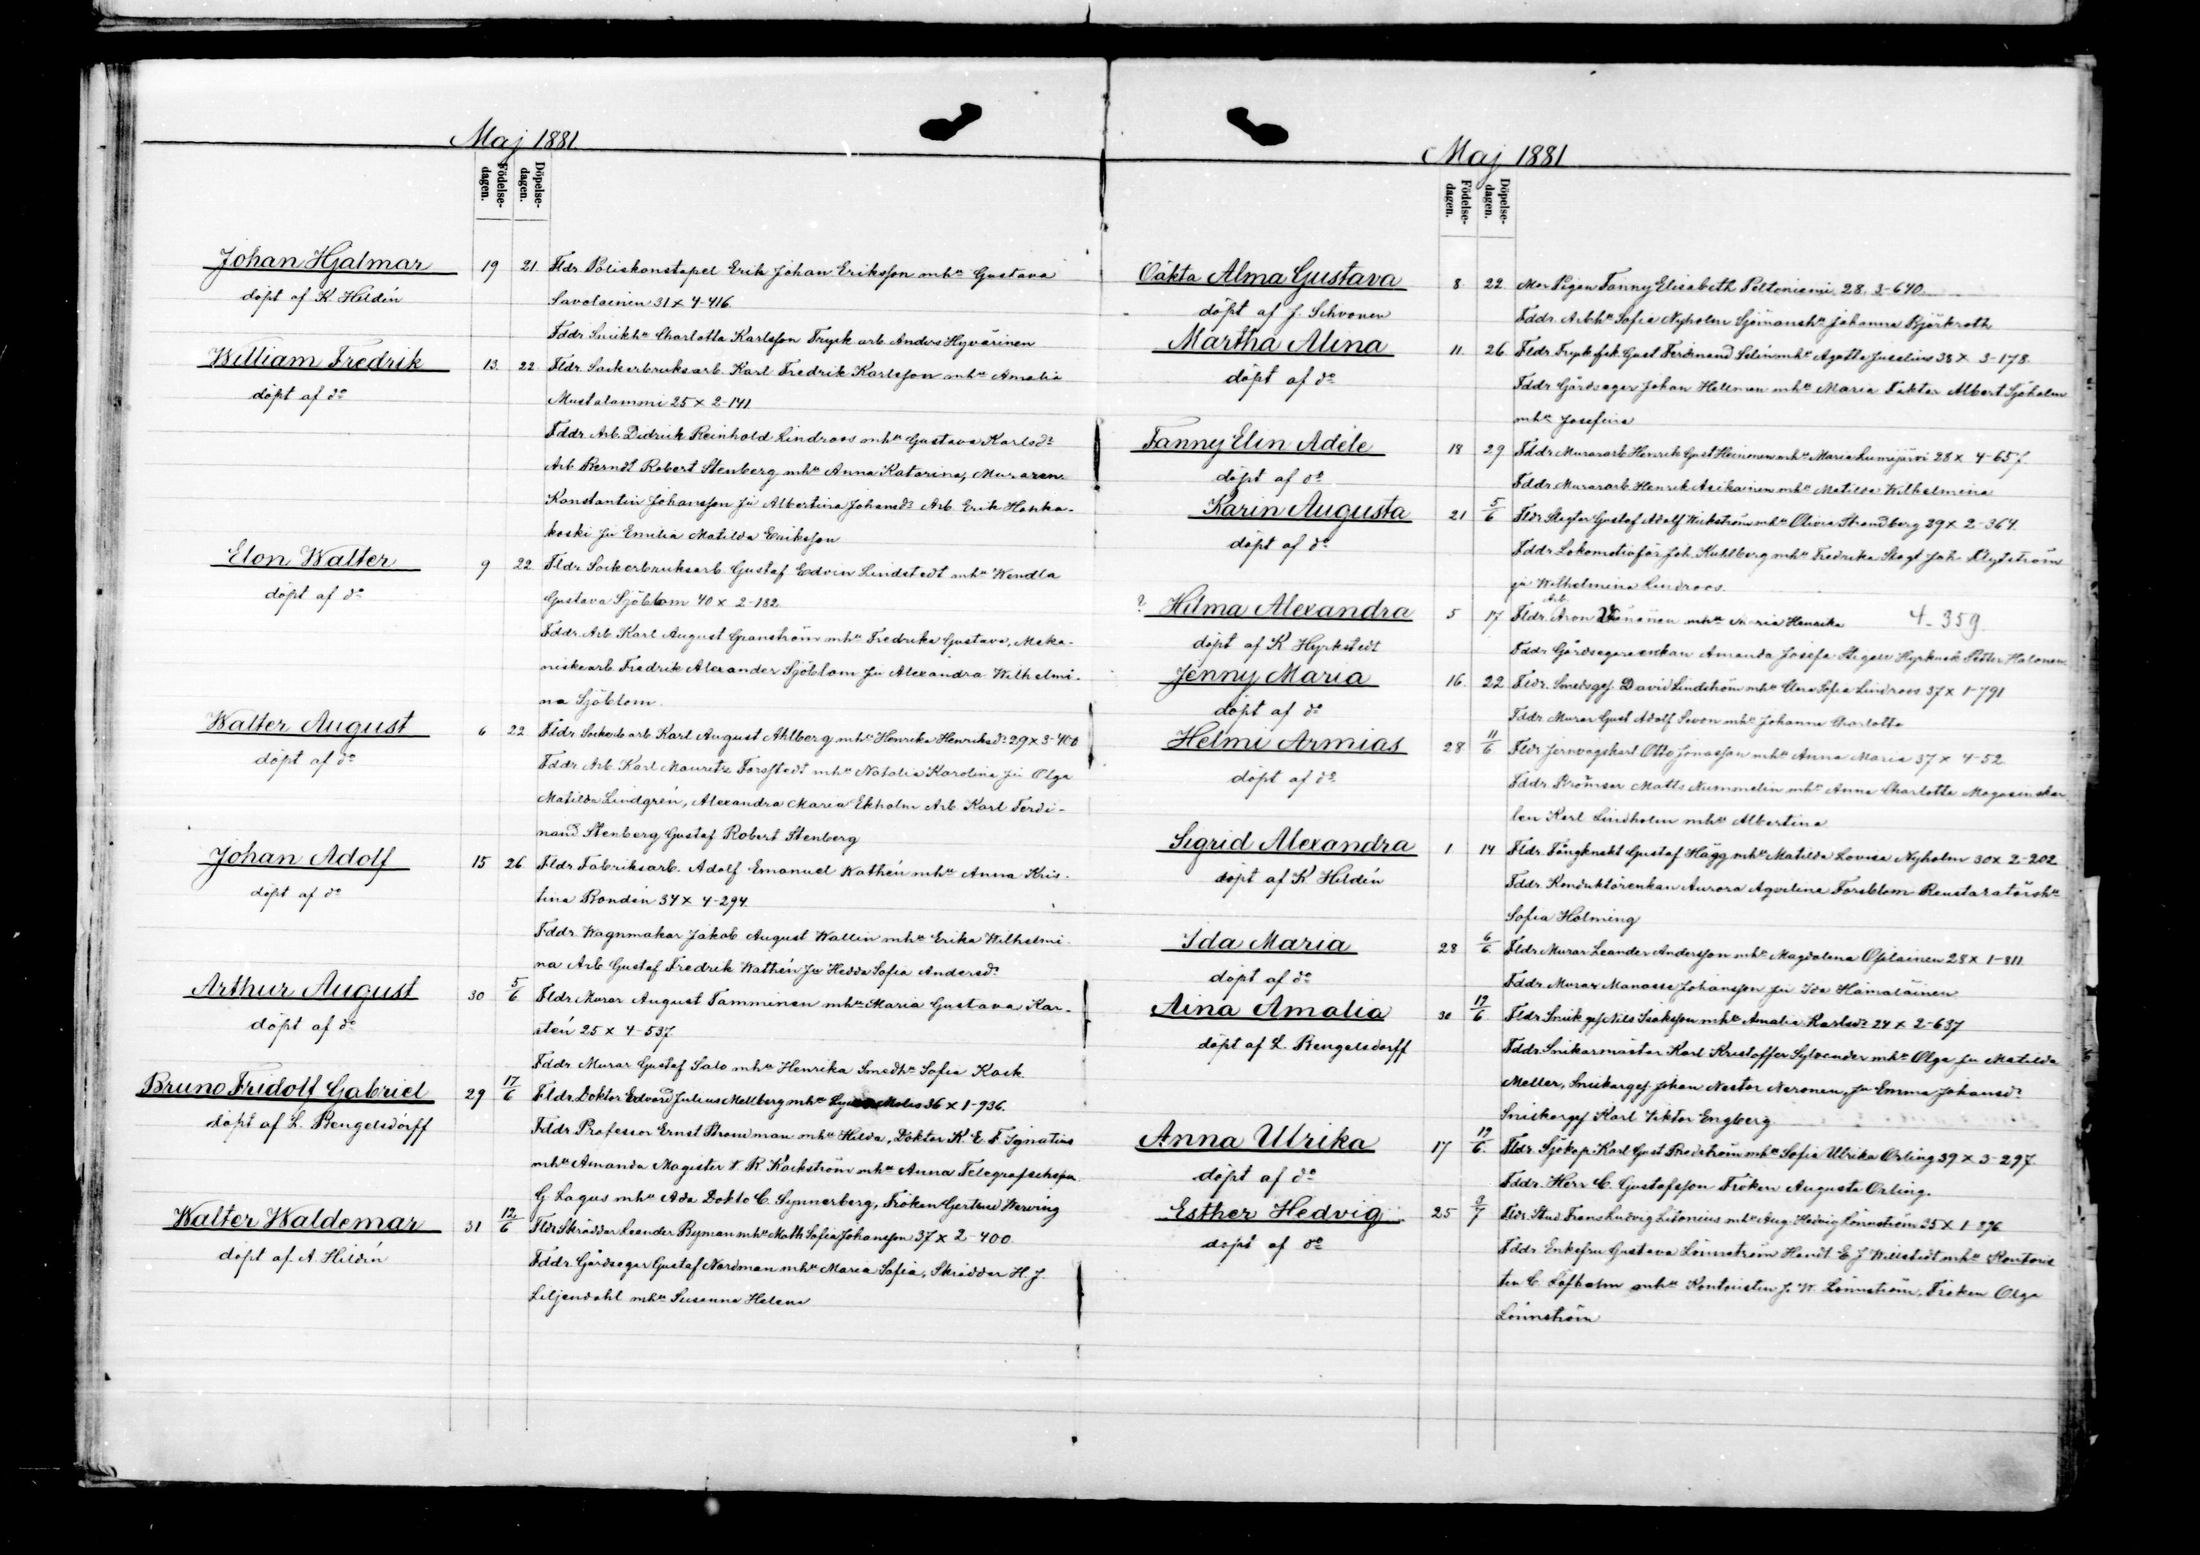 Maj 1881
Födelse-dagen. Döpelse-dagen.
Johan Hjalmar 19 21 Fldr. Poliskonstapel Erik Johan Eriksson mhu Gustava
döpt af K Hildén Savolainen 31 x 4-416.
Fddr Snickh Charlotta Karlsson Tryck arb. Anders Hyvärinen
William Fredrik 13 22 Fldr. Sockerbruksarb. Karl Fredrik Karlsson mhu Amalia
döpt af do Mustalammi 25 x 2-141
Fddr Arb. Didrick Reinhold Lindroos mhu Gustava Karlsdr
Arb. Berndt Robert Stenberg mhu Anna Katarina, Muraren
Konstantin Johansson Ju Albertina Johansdr Arb. Erik Honka-
koski Ju Emilia Matilda Eriksson
Elon Walter 9 22 Fldr. Sockerbruksarb. Gustaf Edvin Lindstedt mhu Wendla
döpt af do Gustava Sjöblom 40 x 2-182
Fddr. Arb Karl August Granström mhu Fredrika Gustava, Meka-
niskearb. Fredrik Alexander Sjöblom Ju Alexandra Wilhelmi-
na Sjöblom.
Walter August 6 22 Fldr. Sockerb arb Karl August Ahlberg mhu Henrika Henriksdr 29 x 3-400
döpt af do Fddr Arb. Karl Mauritz Forsstedt mhu Natalia Karolina Ju Olga
Matilda Lindgrén, Alexandra Maria Ekholm Arb Karl Ferdi-
nand Stenberg Gustaf Robert Stenberg
Johan Adolf 15 26 Fldr Fabriksarb. Adolf Emanuel Wathén mhu Anna Kris-
döpt af do tina Bondén 34 x 4-294.
Fddr. Wagnmakar Jakob August Wallin mhu Erika Wilhelmi-
na Arb Gustaf Fredrik Wathén Ju Hedda Sofia Andersdr
Arthur August 30 5/6 Fldr. Murar August Tamminen mhu Maria Gustava Kar-
döpt af do stén 25 x 4-537
Fddr. Murar Gustaf Salo mhu Henrika Smedh Sofia Kock
Bruno Fridolf Gabriel 29 17/6 Fldr. Doktor Edvard Julius Mellberg mhu 36 x 1-936.
döpt af L. Bengelsdorff Fddr Professor Ernst Bonsdman mhu Hilda, Doktor K. E. F. Ignatius
mhu Amanda Magister V. R. Kockström mhu Anna Telegrafschefen
G Lagus mhu Ada Dokto C. Synnerberg, Fröken Gertrud Werving
Walter Waldemar 31 12/6 Fldr Skräddar Leander Byman mhu Math Sofia Johansson 37 x 2-400
döpt af A. Hildén Fddr. Gårdsegar Gustaf Nordman mhu Maria Sofia, Skräddar H. J.
Liljendahl mhu Susanna Helena
Maj 1881
Födelse-dagen. Döpelse-dagen.
Oäkta Alma Gustava 8 22 Mor Pigan Fanny Elisabeth Peltoniemi 28. 3-640.
döpt af J. Sihvonen Fddr. Arbh Sofia Nyholm Sjömansh Johanna Björkroth
Martha Alina 11. 26 Fldr. Gust Ferdinand Selin mhu Agatha Juselius 38 x 3-178.
döpt af do Fddr Gårdsegar Johan Hellman mhu Maria Faktor Albert Sjöholm
mhu Josefina
Fanny Elin Adéle 18 29 Fldr Murararb Henrik Gust Heinonen mhu Maria Lumijärvi 28 x 4-657.
döpt af do Fddr Murararb. Henrik Asikainen mhu Matilda Wilhelmina
Karin Augusta 21 5/6 Fldr. Slagtar Gustaf Adolf Wickström mhu Olivia Strandberg 29 x 2-364.
döpt af do Fddr. Lokomotivför Joh. Kullberg mhu Fredrika Slagt Joh. Klydström
ju Wilhelmina Lindroos.
? Hilma Alexandra 5 17 Fldr. Arb. Aron Väänänen mhu Maria Henrika 4-359
döpt af K Hyrkstedt Fddr Gårdsegareenkan Amanda Josefa Hyrkusk Petter Halonen
Jenny Maria 16. 22 Fldr. Smedsgs. David Lindström mhu Clara Sofia Lindroos 37 x 1-791
döpt af do Fddr Murar Gust Adolf Sevon mhu Johanna Charlotta
Helmi Armias 28 11/6 Fldr. Jernvagskarl Otto Jonasson mhu Anna Maria 37 x 4-52.
döpt af do Fddr. Bromsar Matts Nummelin mhu Anna Charlotta Magasinskar-
len Karl Lindholm mhu Albertina
Sigrid Alexandra 1 14 Fldr. Fångknekt Gustaf Hägg mhu Matilda Lovisa Nyholm 30 x 2-202
döpt af K Hildén Fddr. Konduktörenkan Aurora Aqvilina Forsblom Restauratörsh
Sofia Holming
Ida Maria 28 6/6. Fldr. Murar Leander Andersson mhu Magdalena Ojilainen 28 x 1-811
döpt af do Fddr. Murar Manasse Johansson ju Ida Hämäläinen
Aina Amalia 30 19/6. Fldr. Snick gs Nils Isaksson mhu Amalia Karlsdr 24 x 2-637
döpt af L. Bengelsdorff Fddr. Snikarmäster Karl Kristoffer Sylvander mhu Olga ju Matilda
Meller, Snickargs Johan Nestor Neronen, Ju Emma Johansdr
Snickargs Karl Viktor Engberg
Anna Ulrika 17 19/6. Fldr. Sjökap. Karl Gust Bredström mhu Sofia Ulrika Orling 39 x 3-297.
döpt af do Fddr. Herr C. Gustafsson Fröken Augusta Orling.
Esther Hedvig 25 3/7 Fldr. Stud Frans Ludvig Litonius mhu Aug. Hedvig Lönnström 35 x 1-276
döpt af do Fddr. Enkefru Gustava Lönnström Handl. E. J Willstedt mhu Kontoris-
ten C. Löfholm mhu Kontoristen J. W. Lönnström, Fröken Olga
Lönnström